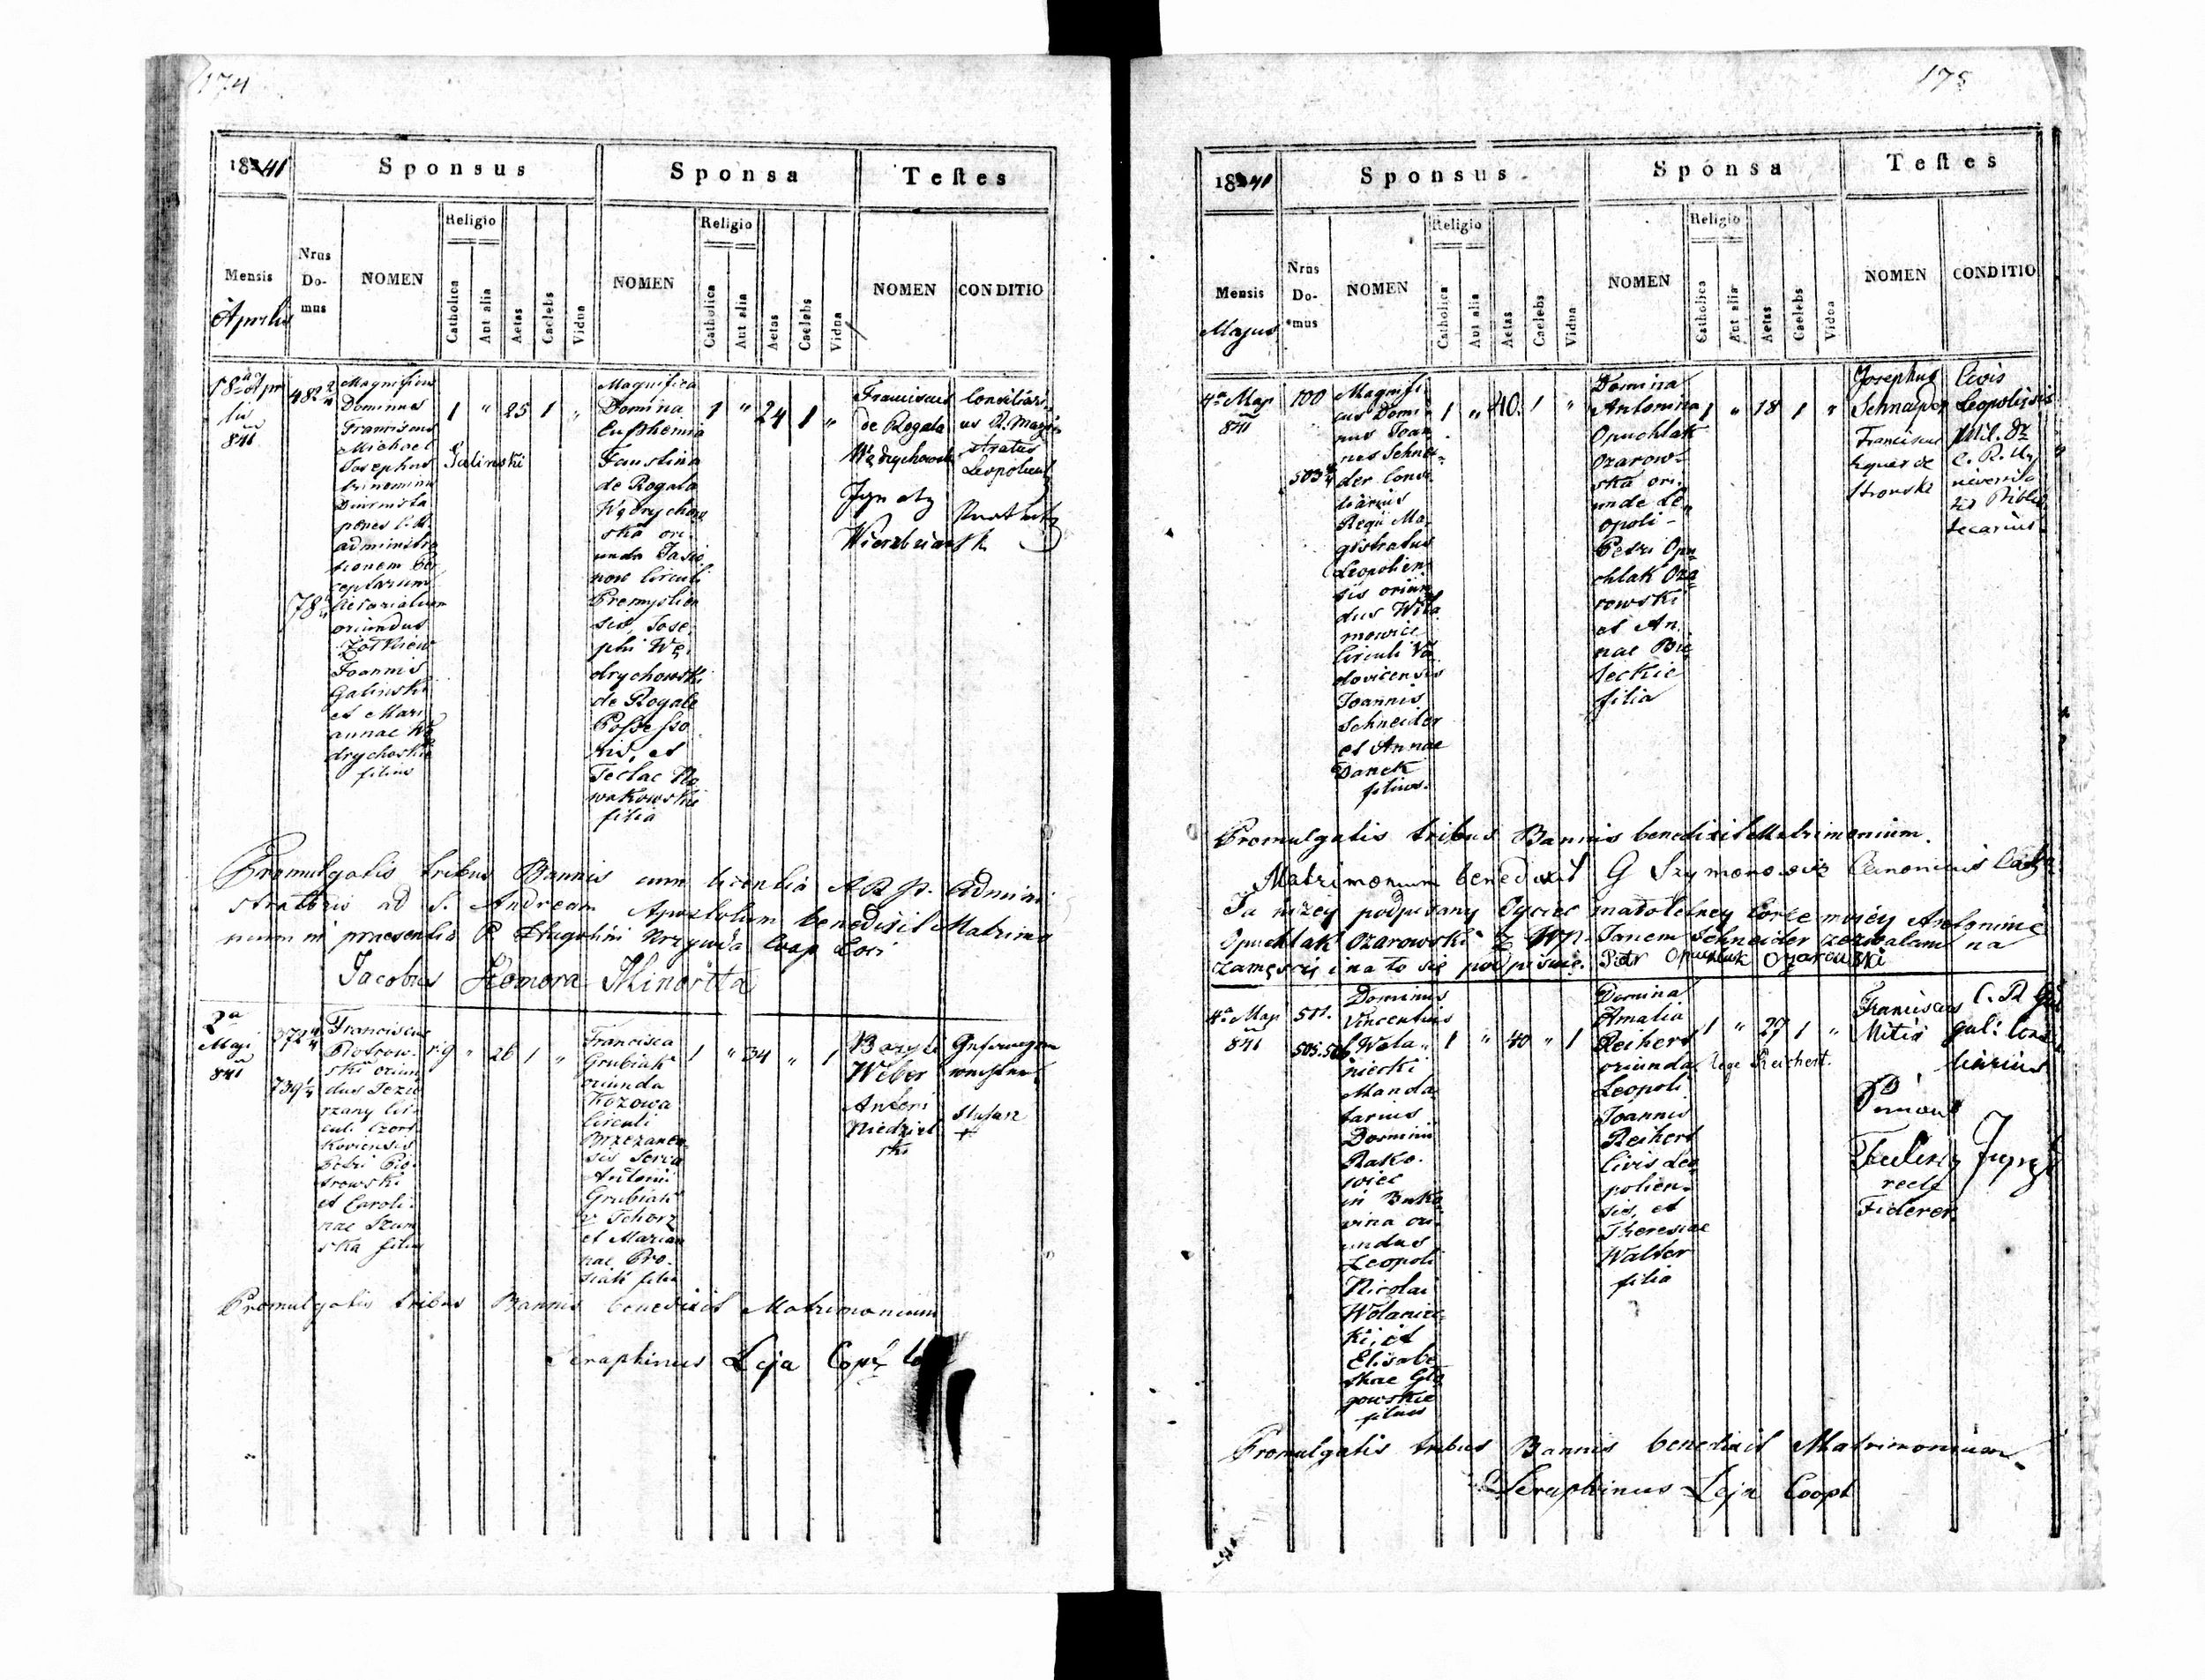 174
1841
Sponsus
Sponsa
Testes
Mensis
Aprilis
Nrus
Do-
mus
NOMEN
Religio
Catholica
Aut alia
Aetas
Caelebs
Vidua
NOMEN
Religio
Catholica
Aut alia
Aetas
Caelebs
Vidua
NOMEN
CONDITIO
18a Apri
lis
841
482 2/4
78
Magnificus
Dominus
Franciscus
Michael
Josephus Galinski
trinominis
Diurnista
penes
administra
tionem per
ceptarum
aerarialium
oriundus
Żołkiew
Joannis
Galinski
et Mari
annae Wę
drychoskie
filius
1 " 25 1 "
Magnifica
Domina
Euphemia
Faustina
de Rogala
Wędrychow
ska ori
unda Jasie
now Circuli
Premyslien
sis, Jose
phi Wę
drychowski
de Rogale
Possesso
ris, et
Teclae No
wakowski
filia
1 " 24 1 "
Franciscus
de Rogala
Wędrychowski
Ignatz
Wierzbianski
Consiliari
us R. Magi
stratus
Leopoliensis
Promulgatis tribus Bannis cum licentia A R P. Admini
stratoris ad S. Andream Apostolum benedixit Matrimo
nium in praesentia P. Hugolini Krzywda Coop Loci
Jacobus Komora Minoritta
2a
Maji
841
372 4/4
739 1/4
Franciscus
Piotrow-
ski oriun
dus Jezie
rzany Cir-
culi Czort
koviensis
Petri Pio
trowski
et Caroli
nae Szum
ska filius
" 26 1 "
Francisca
Grubiak
oriunda
Kozowa
Circuli
Brzezanen
sis Serva
Antoni
Grubiak
v Tchorz
et Marian
nae Pro
siak filia
1 " 34 " 1
Weber
Antoni
Niedziel
ski
+
Promulgatis tribus Bannis benedixit Matrimonium
Seraphinus Leja Coop
175
1841
Sponsus
Sponsa
Testes
Mensis
Majus
Nrus
Do-
mus
NOMEN
Religio
Catholica
Aut alia
Aetas
Caelebs
Vidua
NOMEN
Religio
Catholica
Aut alia
Aetas
Caelebs
Vidua
NOMEN
CONDITIO
4a Maji
841
100
503 4/4
Magnifi
cus Domi
nus Joan
nes Schnei-
der Consi
liarius
Regii Ma
gistratus
Leopolien
sis oriun
dus Wila
mowice
Circuli Va
dovicensis
Joannis
Schneider
et Annae
Danek
filius.
1 " 40 1 "
Domina
Antonina
Opuchlak
Ozarow-
ska ori
unde Le
opoli -
Petri Opu
chlak Oza
rowski
et An
nae Bie
leckie
filia
1 " 18 1 "
Josephus
Schnaider
Franciscus
Eques de
Stronski
Civis
Leopoliensis
Phil. Dr
C. R. U
niversita
tis Biblio
tecarius
Promulgatis tribus Bannis benedixit Matrimonium.
Matrimonium benedixit G Szymonowicz Canonicus
Ja niżey podpisany Oyciec małoletney Corce moiéy Antoninie
Opuchlak Ozarowski z Wp. Janem Schneider zezwalam na
zamęscie i na to się podpisuie. Piotr Opuchlak Ozarowski
4a Maji
841
501.
505.506
Dominus
Vincentius
Wola-
niecki
Manda
tarius
Dominii
Rako-
wiec
in Buko
vina ori
undus
Leopoli
Nicolai
Wolaniec
ki, et
Elisabe
thae Gło
gowskie
filius
1 " 40 " 1
Domina
Amalia
Reihert
oriunda lege Reichert.
Leopoli
Joannis
Reihert
Civis Leo
polien-
sis, et
Theresiae
Walter
filia
1 " 27 1 "
Franciscus
Mitis
recte
Fiderer.
C. R. Gu
gul: Consi
liarius
Promulgatis tribus Bannis benedixit Matrimonium.
Seraphinus Leja Coop